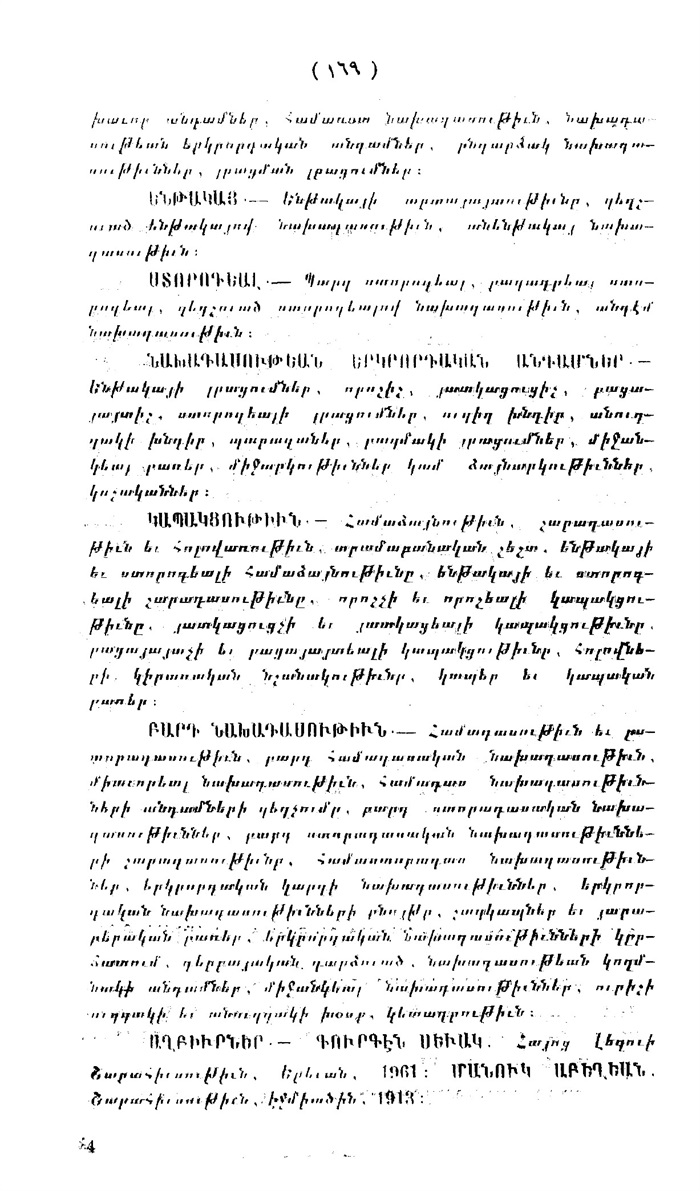 ( ١٦٩ )
խաւոր անդամներ, Համառօտ նախադասութիւն, նախադա-
սութեան երկրորդական անդամներ, ընդարձակ նախադա-
սութիւններ, լրացման լրացումներ:
ԵՆԹԱԿԱՅ.— Ենթակայի արտայայտութիւնը, զեղչ-
ուած ենթակայով նախադասութիւն, անենթակայ նախա-
դասութիւն:
ՍՏՈՐՈԳԵԱԼ.— Պարզ ստորոգեալ, բաղադրեալ ստո-
րոգեալ, զեղչուած ստորոգեալով նախադասութիւն, անդէմ
նախադասութիւն:
ՆԱԽԱԴԱՍՈՒԹԵԱՆ ԵՐԿՐՈՐԴԱԿԱՆ ԱՆԴԱՄՆԵՐ.—
Ենթակայի լրացումներ, որոշիչ, յատկացուցիչ, բացա-
յայտիչ, ստորոգեալի լրացումներ, ուղիղ խնդիր, անուղ-
ղակի խնդիր, պարագաներ, բազմակի լրացումներ, միջան-
կեալ բառեր, միջարկութիւններ կամ ձայնարկութիւններ,
կոչականներ:
ԿԱՊԱԿՑՈՒԹԻՒՆ.— Համաձայնութիւն, շարադասու-
թիւն եւ Հոլովառութիւն, տրամաբանական շեշտ, ենթակայի
եւ ստորոգեալի Համաձայնութիւնը, ենթակայի եւ ստորոգ-
եալի շարադասութիւնը, որոշչի եւ որոշեալի կապակցու-
թիւնը, յատկացուցչի եւ յատկացեալի կապակցութիւնը,
բացայայտչի եւ բացայայտեալի կապակցութիւնը, Հոլովնե-
րի կիրառական նշանակութիւնը, կապեր եւ կապական
բառեր:
ԲԱՐԴ ՆԱԽԱԴԱՍՈՒԹԻՒՆ.— Համադասութիւն եւ ըս-
տորադասութիւն, բարդ Համադասական նախադասութիւն,
միաւորեալ նախադասութիւն, Համադաս նախադասութիւն-
ների անդամների զեղչումը, բարդ ստորադասական նախա-
դասութիւններ, բարդ ստորադասական նախադասութիւննե-
րի շարադասութիւնը, Համաստորադաս նախադասութիւն-
ներ, երկրորդական կարգի նախադասութիւններ, երկրոր-
դական նախադասութիւնների բնոյթը, շաղկապներ եւ յարա-
բերական բառեր, երկրորդական նախադասութիւնների կըր-
ճատում, դերբայական դարձուած, նախադասութեան կողմ-
նակի անդամներ, միջանկեալ նախադասութիւններ, ուրիշի
ուղղակի եւ անուղղակի խօսք, կետադրութիւն:
ԱՂԲԻՒՐՆԵՐ.— ԳՈՒՐԳԷՆ ՍԵՒԱԿ. Հայոց Լեզուի
Շարահիւսութիւն, Երեւան, 1961: ՄԱՆՈՒԿ ԱԲԵՂԵԱՆ,
Շարահիւսութիւն, Էջմիածին, 1913: